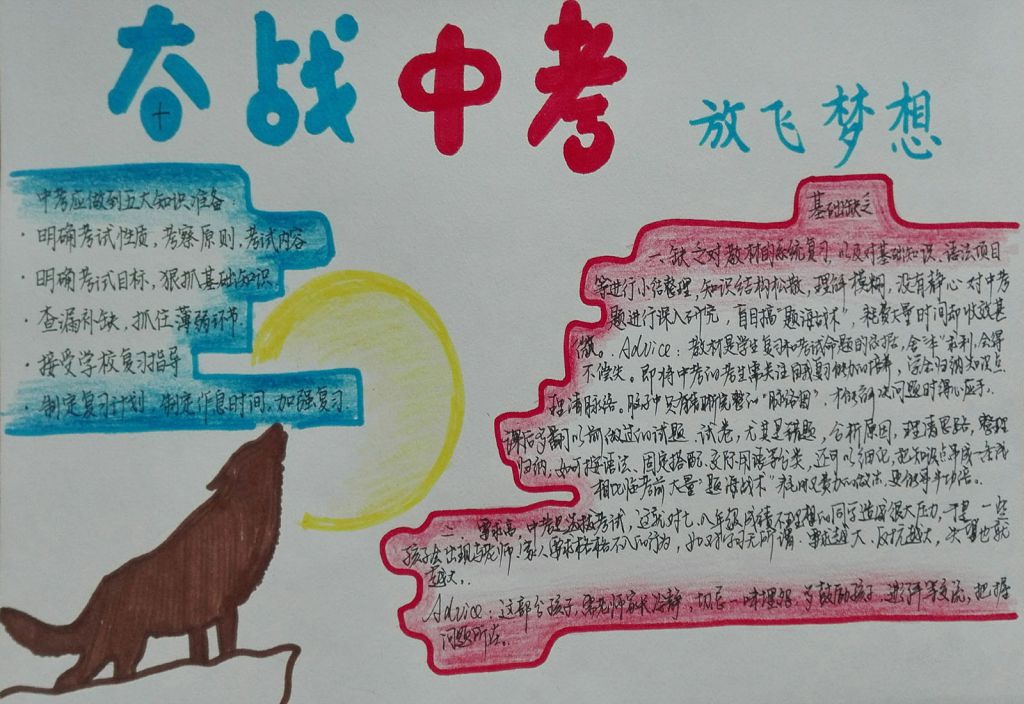 奋战中考
放飞梦想
中考应做到五大知识准备
· 明确考试性质、考察原则、考试内容
· 明确考试目标、狠抓基础知识
· 查漏补缺、抓住薄弱环节.
· 接受学校复习指导
· 制定复习计划、制定作息时间、加强复习
基础缺乏
一、缺乏对教材的系统复习,以及对基础知识、语法项目
等进行小结整理,知识结构松散,理解模糊,没有静心对中考
题进行深入研究,盲目搞"题海战术",耗费大量时间却收效甚
微。Advice:教材是学生复习和考试命题的依据,舍"本"求利,会得
不偿失。即将中考的考生需关注自我复习能力的培养,学会归纳知识点
理清脉络。脑中只有清晰完整的"脉络图",才能在解决问题时得心应手.
课后多翻以前做过的试题、试卷,尤其是错题,分析原因,理清思路,整理
归纳,如可按语法、固定搭配、交际用语等分类,还可以细化,把知识点串成一条线
相比临考前大量"题海战术"
二、要求高,中考是选拔考试,这就对七、八年级成绩不理想的同学造成很大压力,于是一些
孩子会出现与老师、家人要求格格不入的行为,如对学习无所谓.要求越大、反抗越大,失望也就
越大.
Advice:这部分孩子,需老师家长冷静,切忌一味埋怨.多鼓励孩子,进行平等交流,把握
问题所在。